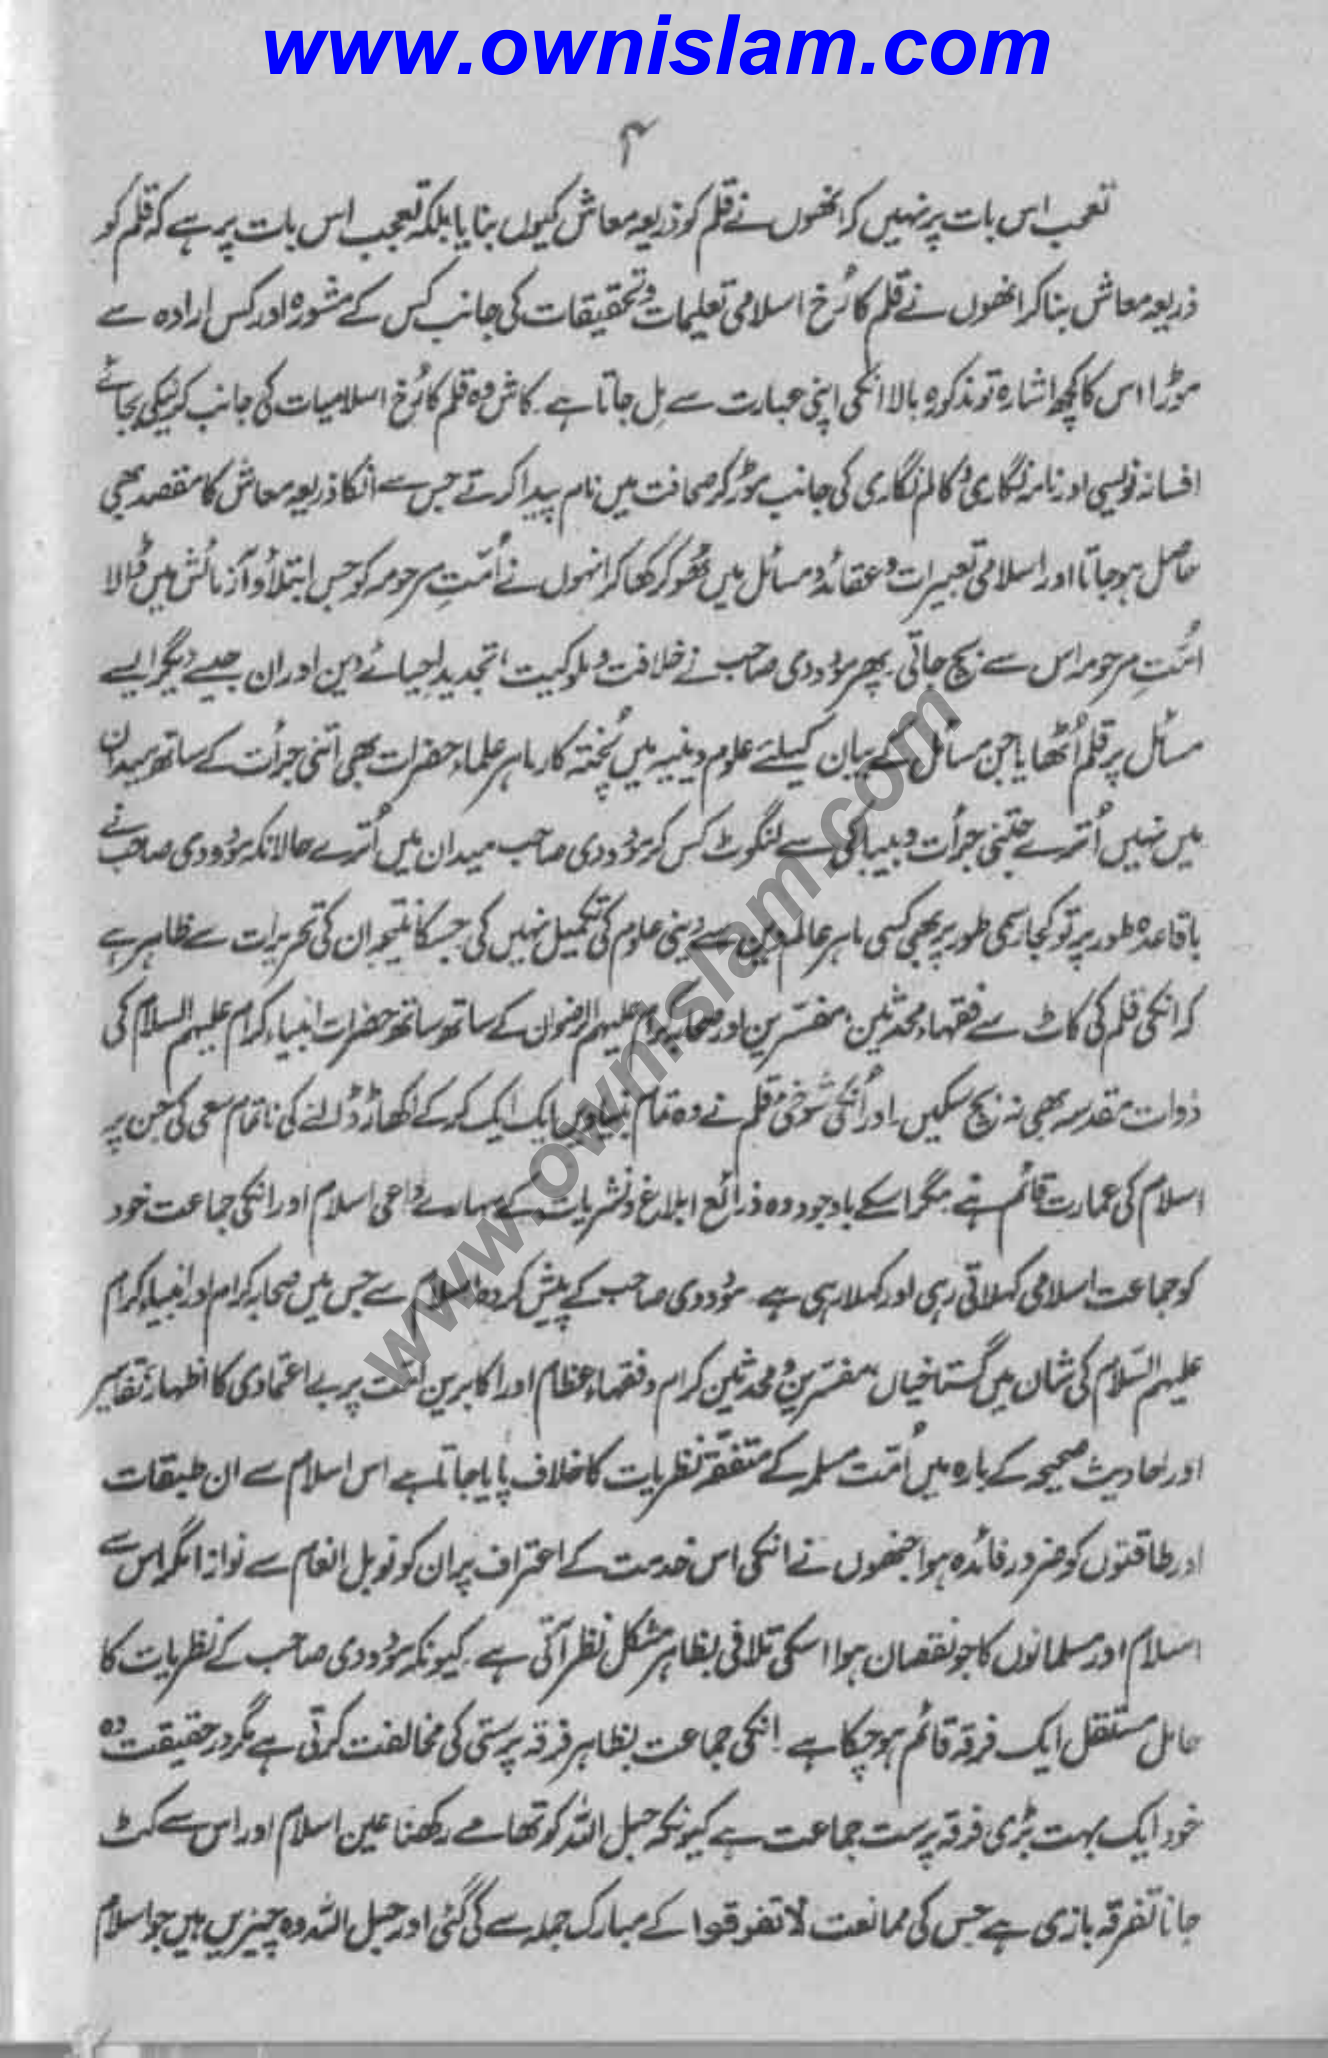 www.ownislam.com
۴
تعجب اس بات پر نہیں کہ انھوں نے قلم کو ذریعہ معاش کیوں بنایا بلکہ تعجب اس بات پر ہے کہ قلم کو
ذریعہ معاش بنا کر انھوں نے قلم کا رُخ اسلامی تعلیمات و تحقیقات کی جانب کس کے مشورہ اور کس ارادہ سے
موڑا اس کا کچھ اشارہ تو مذکورہ بالا انکی اپنی عبارت سے مِل جاتا ہے۔ کاش وہ قلم کا رُخ اسلامیات کی جانب کرنیکی بجائے
افسانہ نویسی اور نامہ نگاری و کالم نگاری کی جانب موڑ کر صحافت میں نام پیدا کرتے جس سے انکا ذریعہ معاش کا مقصد بھی
حاصل ہو جاتا اور اسلامی تعبیرات و عقائد و مسائل میں ٹھوکر کھا کر انہوں نے اُمّتِ مرحومہ کو جس ابتلأ و آزمائش میں ڈالا
امّتِ مرحومہ اس سے بچ جاتی۔ پھر مودودی صاحب نے خلافت و ملوکیت، تجدید احیائے دین اور ان جیسے دیگر ایسے
مسائل پر قلم اُٹھایا جن مسائل کے بیان کیلئے علوم دینیہ میں پُختہ کار ماہر علماء حضرات بھی اتنی جرأت کے ساتھ میدان
میں نہیں اُترے جتنی جرأت و بیباکی سے لنگوٹ کس کر مودودی صاحب میدان میں اُترے حالانکہ مودودی صاحب نے
باقاعدہ طور پر تو کجا رسمی طور پر بھی کسی ماہر عالم دین سے دینی علوم کی تکمیل نہیں کی جسکا نتیجہ ان کی تحریرات سے ظاہر ہے
کہ انکی قلم کی کاٹ سے فقہاء محدثین، مفسّرین اور صحابہ کرام علیہم الرضوان کے ساتھ ساتھ حضرات انبیاء کرام علیہم السلام کی
ذوات مقدسہ بھی نہ بچ سکیں۔ اور اُنکی شوخئ قلم نے وہ تمام بنیادیں ایک ایک کر کے اکھاڑ ڈالنے کی ناتمام سعی کی جن پر
اسلام کی عمارت قائم ہے مگر اسکے باوجود وہ ذرائع ابلاغ و نشریات کے سہارے داعی اسلام اور انکی جماعت خود
کو جماعت اسلامی کہلاتی رہی اور کہلا رہی ہے۔ مودودی صاحب کے پیش کردہ اسلام سے جس میں صحابہ کرام اور انبیاء کرام
علیہم السّلام کی شان میں گستاخیاں، مفسّرین و محدثین کرام و فقہاء عظام اور اکابرین امّت پر بے اعتمادی کا اظہار، تفاسیر
اور احادیث صحیحہ کے بارہ میں اُمّت مسلمہ کے متفقہ نظریات کا خلاف پایا جاتا ہے اس اسلام سے ان طبقات
اور طاقتوں کو ضرور فائدہ ہوا جنھوں نے انکی اس خدمت کے اعتراف پر ان کو نوبل انعام سے نوازا مگر اس سے
اسلام اور مسلمانوں کا جو نقصان ہوا اسکی تلافی بظاہر مشکل نظر آتی ہے۔ کیونکہ مودودی صاحب کے نظریات کا
حامل مستقل ایک فرقہ قائم ہو چکا ہے۔ انکی جماعت بظاہر فرقہ پرستی کی مخالفت کرتی ہے مگر در حقیقت وہ
خود ایک بہت بڑی فرقہ پرست جماعت ہے کیونکہ حبل اللہ کو تھامے رکھنا عین اسلام اور اس سے کٹ
جانا تفرقہ بازی ہے جس کی ممانعت لا تفرقوا کے مبارک جملہ سے کی گئی اور حبل اللہ وہ چیزیں ہیں جو اسلام
www.ownislam.com